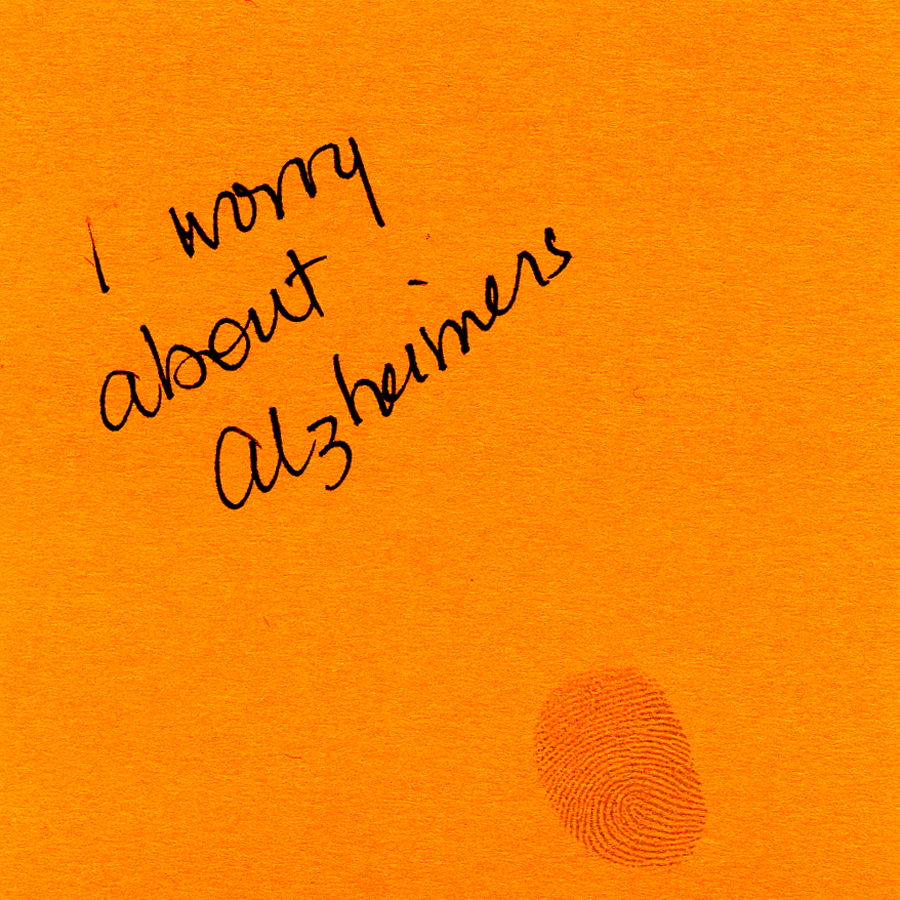 I worry
about
Alzheimers